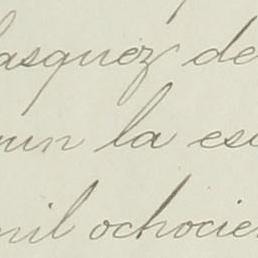 asquez de
un la es
mil ochocie